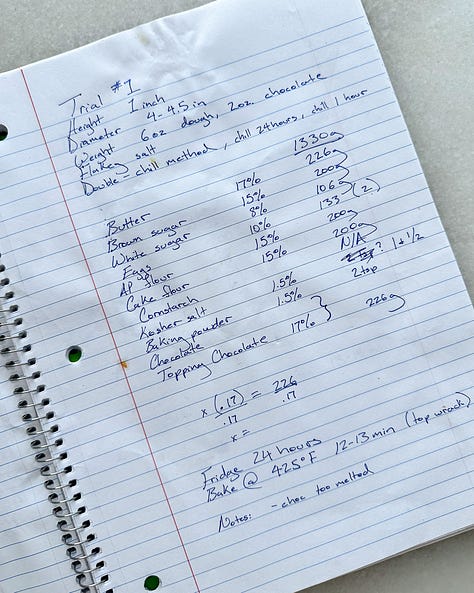 Trial #1
Height 1 inch
Diameter 4-4.5 in
Weight 6oz dough, 2oz. chocolate
Flakey salt
Double-chill method, chill 24hours, chill 1 hour
1330g
Butter 17% 226g
Brown sugar 15% 200g
White sugar 8% 106g
Eggs 10% 133 (2)
AP flour 15% 200g
Cake flour 15% 200g
Cornstarch N/A
Kosher salt 1.5% ? 1 + 1/2
Baking powder 1.5% 2tsp
Chocolate
Topping Chocolate 17% } 226g
x (.17) = 226
.17 .17
x =
Fridge 24 hours
Bake @ 425°F 12-13min (top wrack)
Notes: -choc too melted